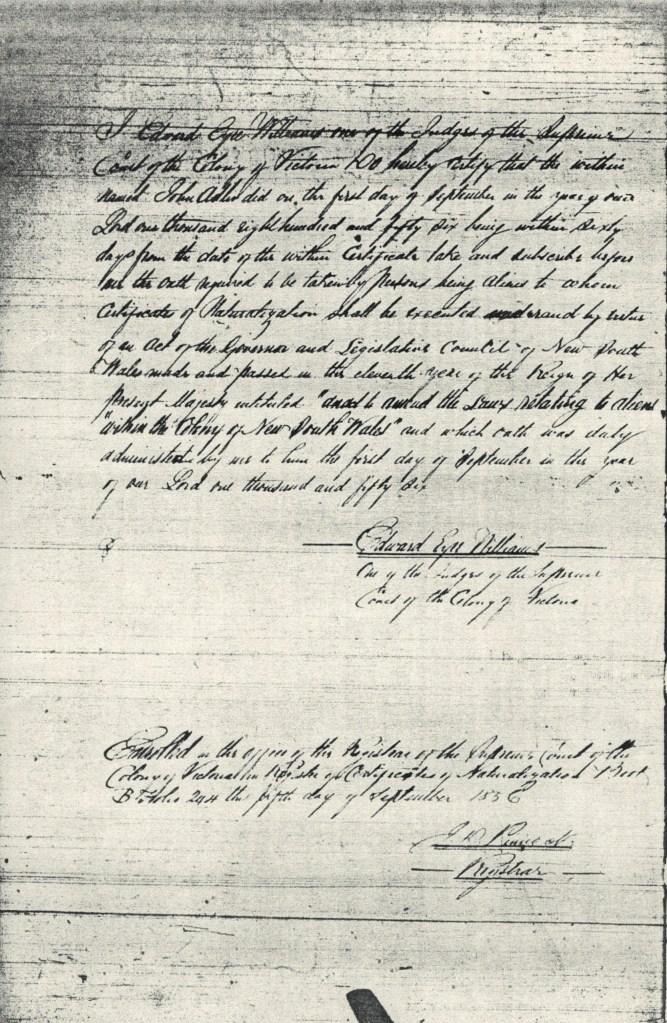 I Edward Eyre Williams one of the Judges of the Supreme
Court of the Colony of Victoria Do hereby certify that the within
named John did on the first day of September in the year of our
Lord one thousand eight hundred and fifty six being within sixty
days from the date of the within Certificate take and subscribe before
me the oath required to be taken by persons being Aliens to whom
Certificate of Naturalization shall be executed under and by virtue
of an Act of the Governor and Legislative Council of New South
Wales made and passed in the eleventh year of the Reign of Her
present Majesty intituled "an act to amend the Laws relating to aliens
"within the Colony of New South Wales" and which oath was duly
administered by me to him the first day of September in the year
of our Lord one thousand and fifty six
Edward Eyre Williams
One of the Judges of the Supreme
Court of the Colony of Victoria
Enrolled in the office of the Registrar of the Supreme Court of the
Colony of Victoria in Register of Certificates of Naturalization Book
B folio 294 the fifth day of September 1856
Registrar